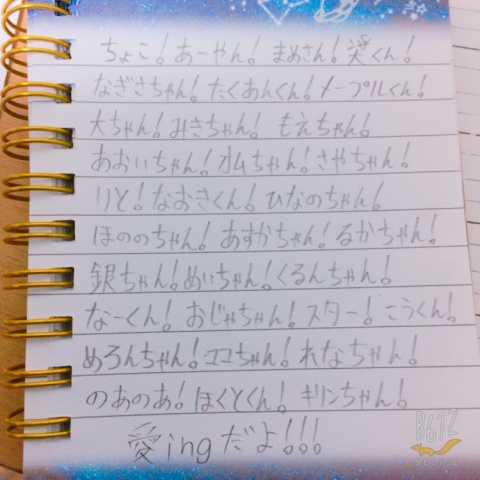 ちょこ! あーやん! まめさん! 奨くん!
なぎさちゃん! たくあんくん! メープルくん!
大ちゃん! みきちゃん! もえちゃん!
あおいちゃん! オムちゃん! さやちゃん!
りと! なおきくん! ひなのちゃん!
ほののちゃん! あすかちゃん! るかちゃん!
銀ちゃん! めいちゃん! くるんちゃん!
なーくん! おじゃちゃん! スター! こうくん!
めろんちゃん! ココちゃん! れなちゃん!
のあのあ! ほくとくん! キリンちゃん!
愛ingだよ!!!
B612